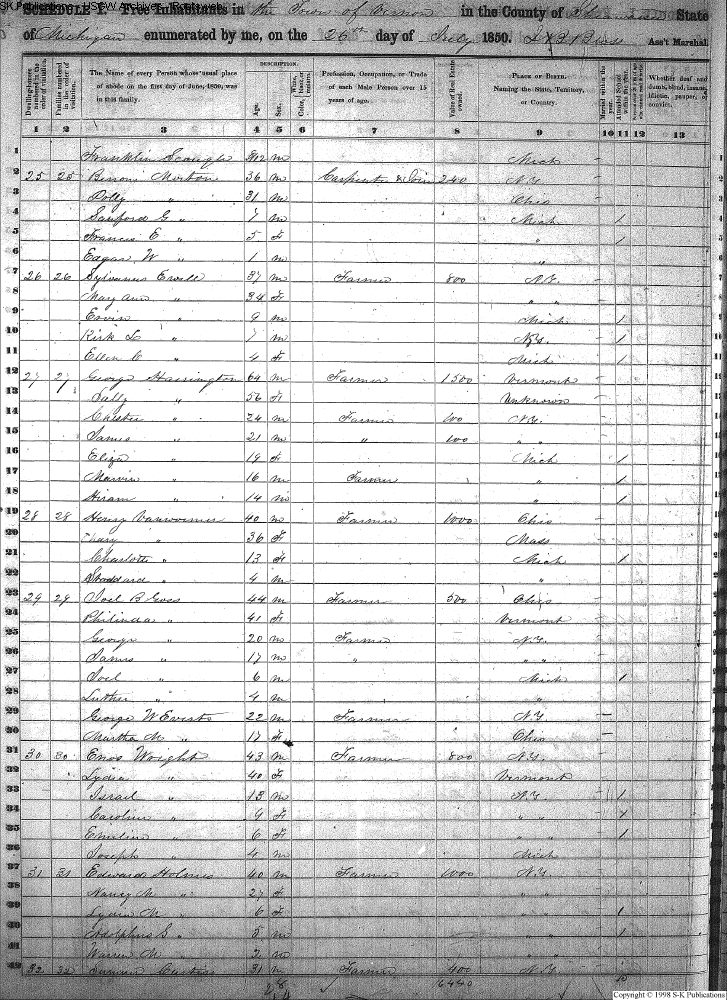 SCHEDULE I. Free Inhabitants in the Town of Vernon in the County of State
of Michigan enumerated by me, on the 26th day of July 1850. Ass't Marshal
DESCRIPTION.
The Name of every Person whose usual place of abode on the first day of June, 1850, was in this family.
Age.
Sex.
Profession, Occupation, or Trade of each Male Person over 15 years of age.
Value of Real Estate owned.
PLACE OF BIRTH. Naming the State, Territory, or Country.
Whether deaf and dumb, blind, insane, idiotic, pauper, or convict.
1 2 3 4 5 6 7 8 9 10 11 12 13
1 Franklin m Mich
2 25 25 Morton 36 m 240 N.Y.
3 Polly " 31 Ohio
4 Sanford G " 7 m Mich 1
5 Francis E " 5 F " 1
6 Edgar W " 1 m "
7 26 26 Sylvanus Ewell 37 m Farmer 800 N.Y.
8 Mary Ann " 34 F " "
9 Ervin " 9 m Mich 1
10 Kirk L " 7 m N.Y. 1
11 Ellen C " 4 F Mich 1
12 27 27 George Harrington 64 m Farmer 1500 Vermont
13 Sally " 56 F Unknown
14 Chester " 24 m Farmer 100 N.Y.
15 James " 21 m " 100 " "
16 Eliza " 19 F Mich 1
17 Marvin " 16 m Farmer " 1
18 Hiram " 14 m " 1
19 28 28 Henry Vanwormer 40 m Farmer 1000 Ohio
20 " 36 F Mass
21 Charlotte " 13 F Mich 1
22 Stoddard " 4 m "
23 29 29 Joel B Goss 44 m Farmer 500 Ohio
24 Philinda " 41 F Vermont
25 George " 20 m Farmer N.Y.
26 James " 17 m " " "
27 Joel " 6 m Mich 1
28 Luther " 4 m "
29 George W Everts 22 m Farmer N.Y.
30 Martha M " 17 F Ohio
31 30 30 Enos Wright 43 m Farmer 800 N.Y.
32 Lydia " 40 F Vermont
33 Israel " 13 m N.Y. 1
34 Caroline " 9 F " " 1
35 Emeline " 6 F " " 1
36 Joseph " 4 m Mich
37 31 31 Edward Holmes 40 m Farmer 1000 N.Y.
38 Nancy M " 27 F " "
Lydia M " 6 F " " 1
Adolphus S " 5 m " " 1
Warren M " 2 m " "
32 32 Sumner 31 m Farmer 400 N.Y.
6440
Copyright © 1998 S-K Publications